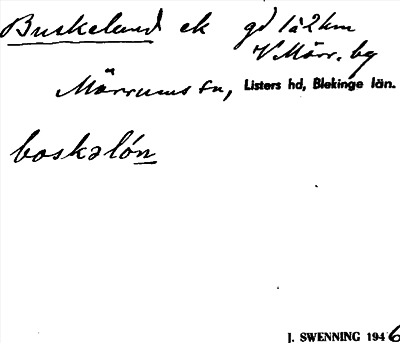 Buskelund ek gd 1 à 2 km
V Mörr. by
Mörrums sn, Listers hd, Blekinge län.
boskəlón
J. SWENNING 1946